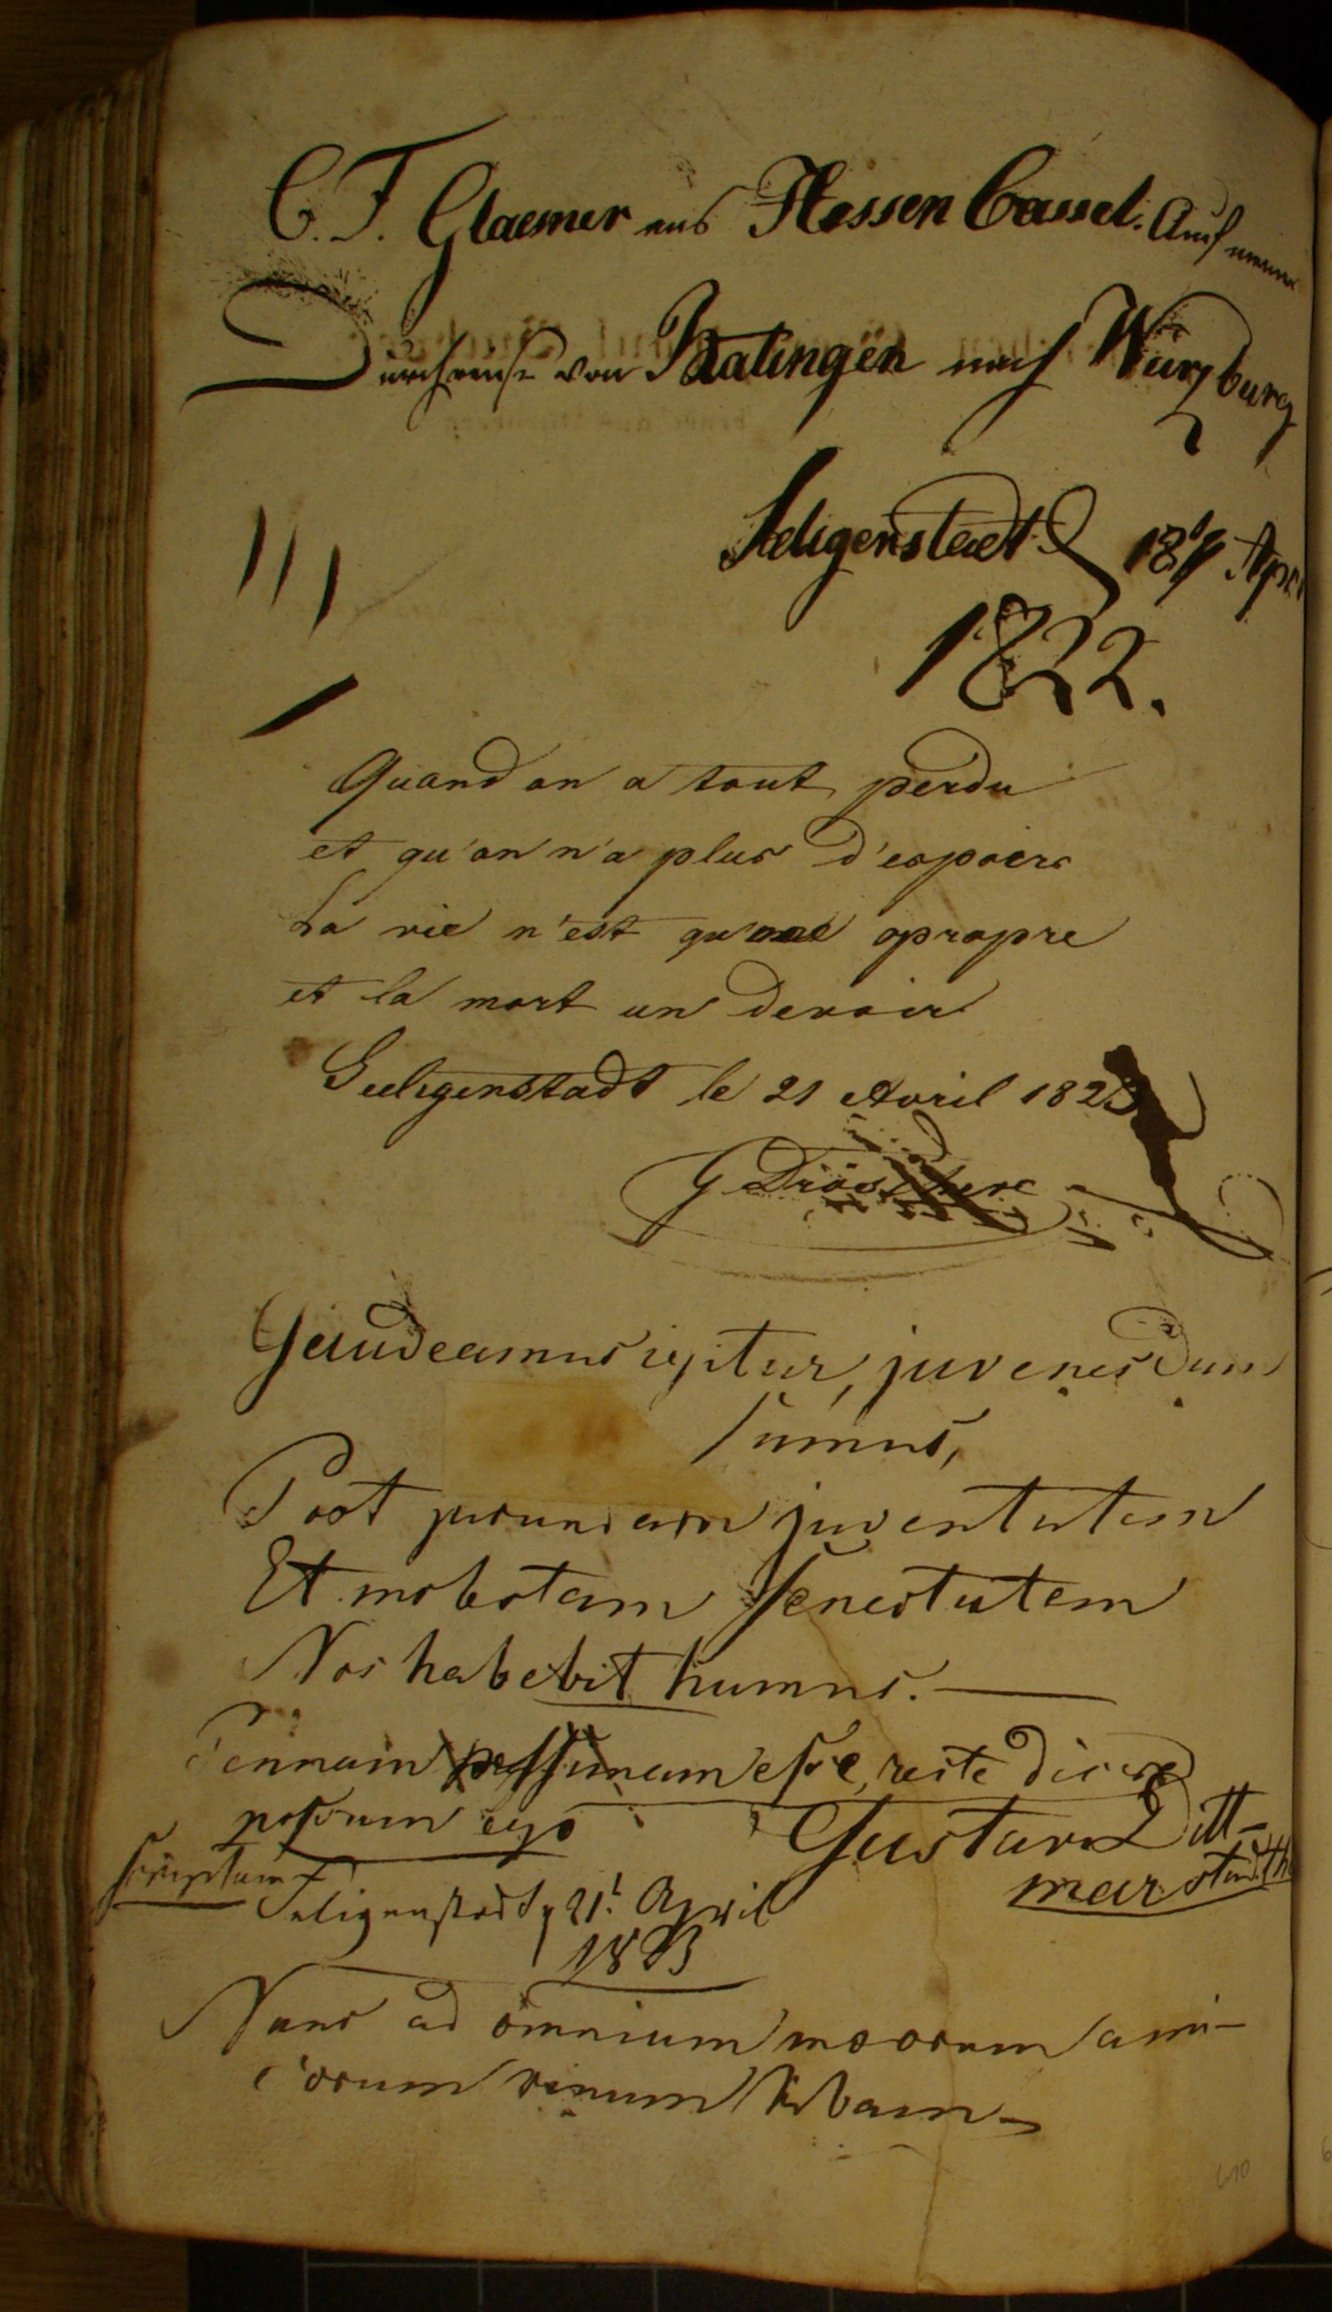 C. F. Glaesner aus Hessen Cassel. Auf meiner
Durchreise von Ratingen nach Würzburg
Seligenstadt 18t April
1822.
Quand on a tout perdu
et qu'on n'a plus d'espoirs
La vie n'est qu'une opropre
et la mort un devoir
Seeligenstadt le 21 Avril 1823
Gaudeamus igitur, juvenes dum
sumus,
Post jucundam juventutem
Et molestam senectutem
Nos habebit humus.
Pennam pessimam esse, recte dicere
possum ego Gustav Ditt-
mar stud. Th
scriptum
Seligenstadt, 21t April
1823
Nunc ad omnium meorum ami-
corum vinum bibam